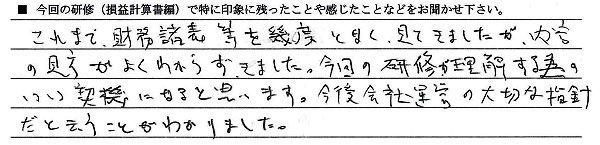 ■ 今回の研修（損益計算書編）で特に印象に残ったことや感じたことなどをお聞かせ下さい。
これまで、財務諸表等を幾度となく見てきましたが、内容
の見方がよくわからずきました。今回の研修が理解する為の
いい契機になると思います。今後会社運営の大切な指針
だと云うことがわかりました。